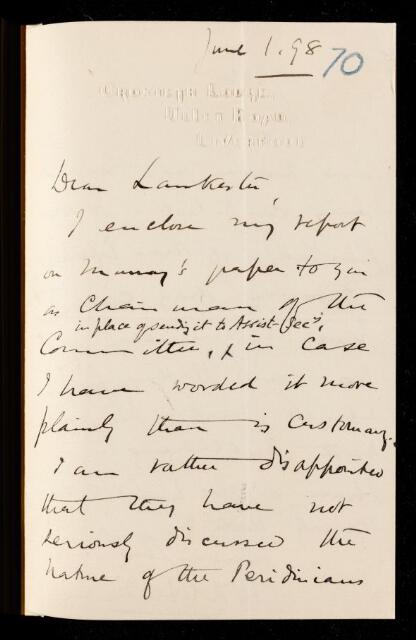 June 1. 98
70
Croxteth Lodge,
Ullet Road,
Liverpool
Dear Lankester,
I enclose my report
on Murray's paper to you
as Chairman of the
in place of sendg it to Assist-Sec's,
Committee, & in case
I have worded it more
plainly than is customary.
I am rather disappointed
that they have not
seriously discussed the
nature of the Peridinians